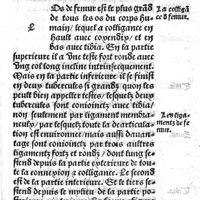 Os de femur est le plus grãd
de tous les os du corps hu-
main/ lequel a colligance en
hault avec coyendix/ et en
bas avec tibia. En sa partie
superieure il a vne teste fort ronde auec
vng col long incline intrinsequement.
Mais en sa partie inferieure il se finist
en deux tubercules si grandz quon les
peult bien appeller testes/ lesquelz deux
tubercules sont conioinctz auec tibia/
non seulement par ligament membra-
neulx/ par lesquelz toute la dearticula-
tion est enuironnee/ mais aussi dauan-
tage sont conioinctz par trois aultres
ligamentz fortz et rondz/ dont lung se
siens depuis la partie exterieure de tou-
te la connexion a colligance. Le second
est de la partie interieure. Et le tiers se
siens depuis le mylieu de la partie po-
La colligã
ce d femur.
Les liga-
mentz de fe
mur.